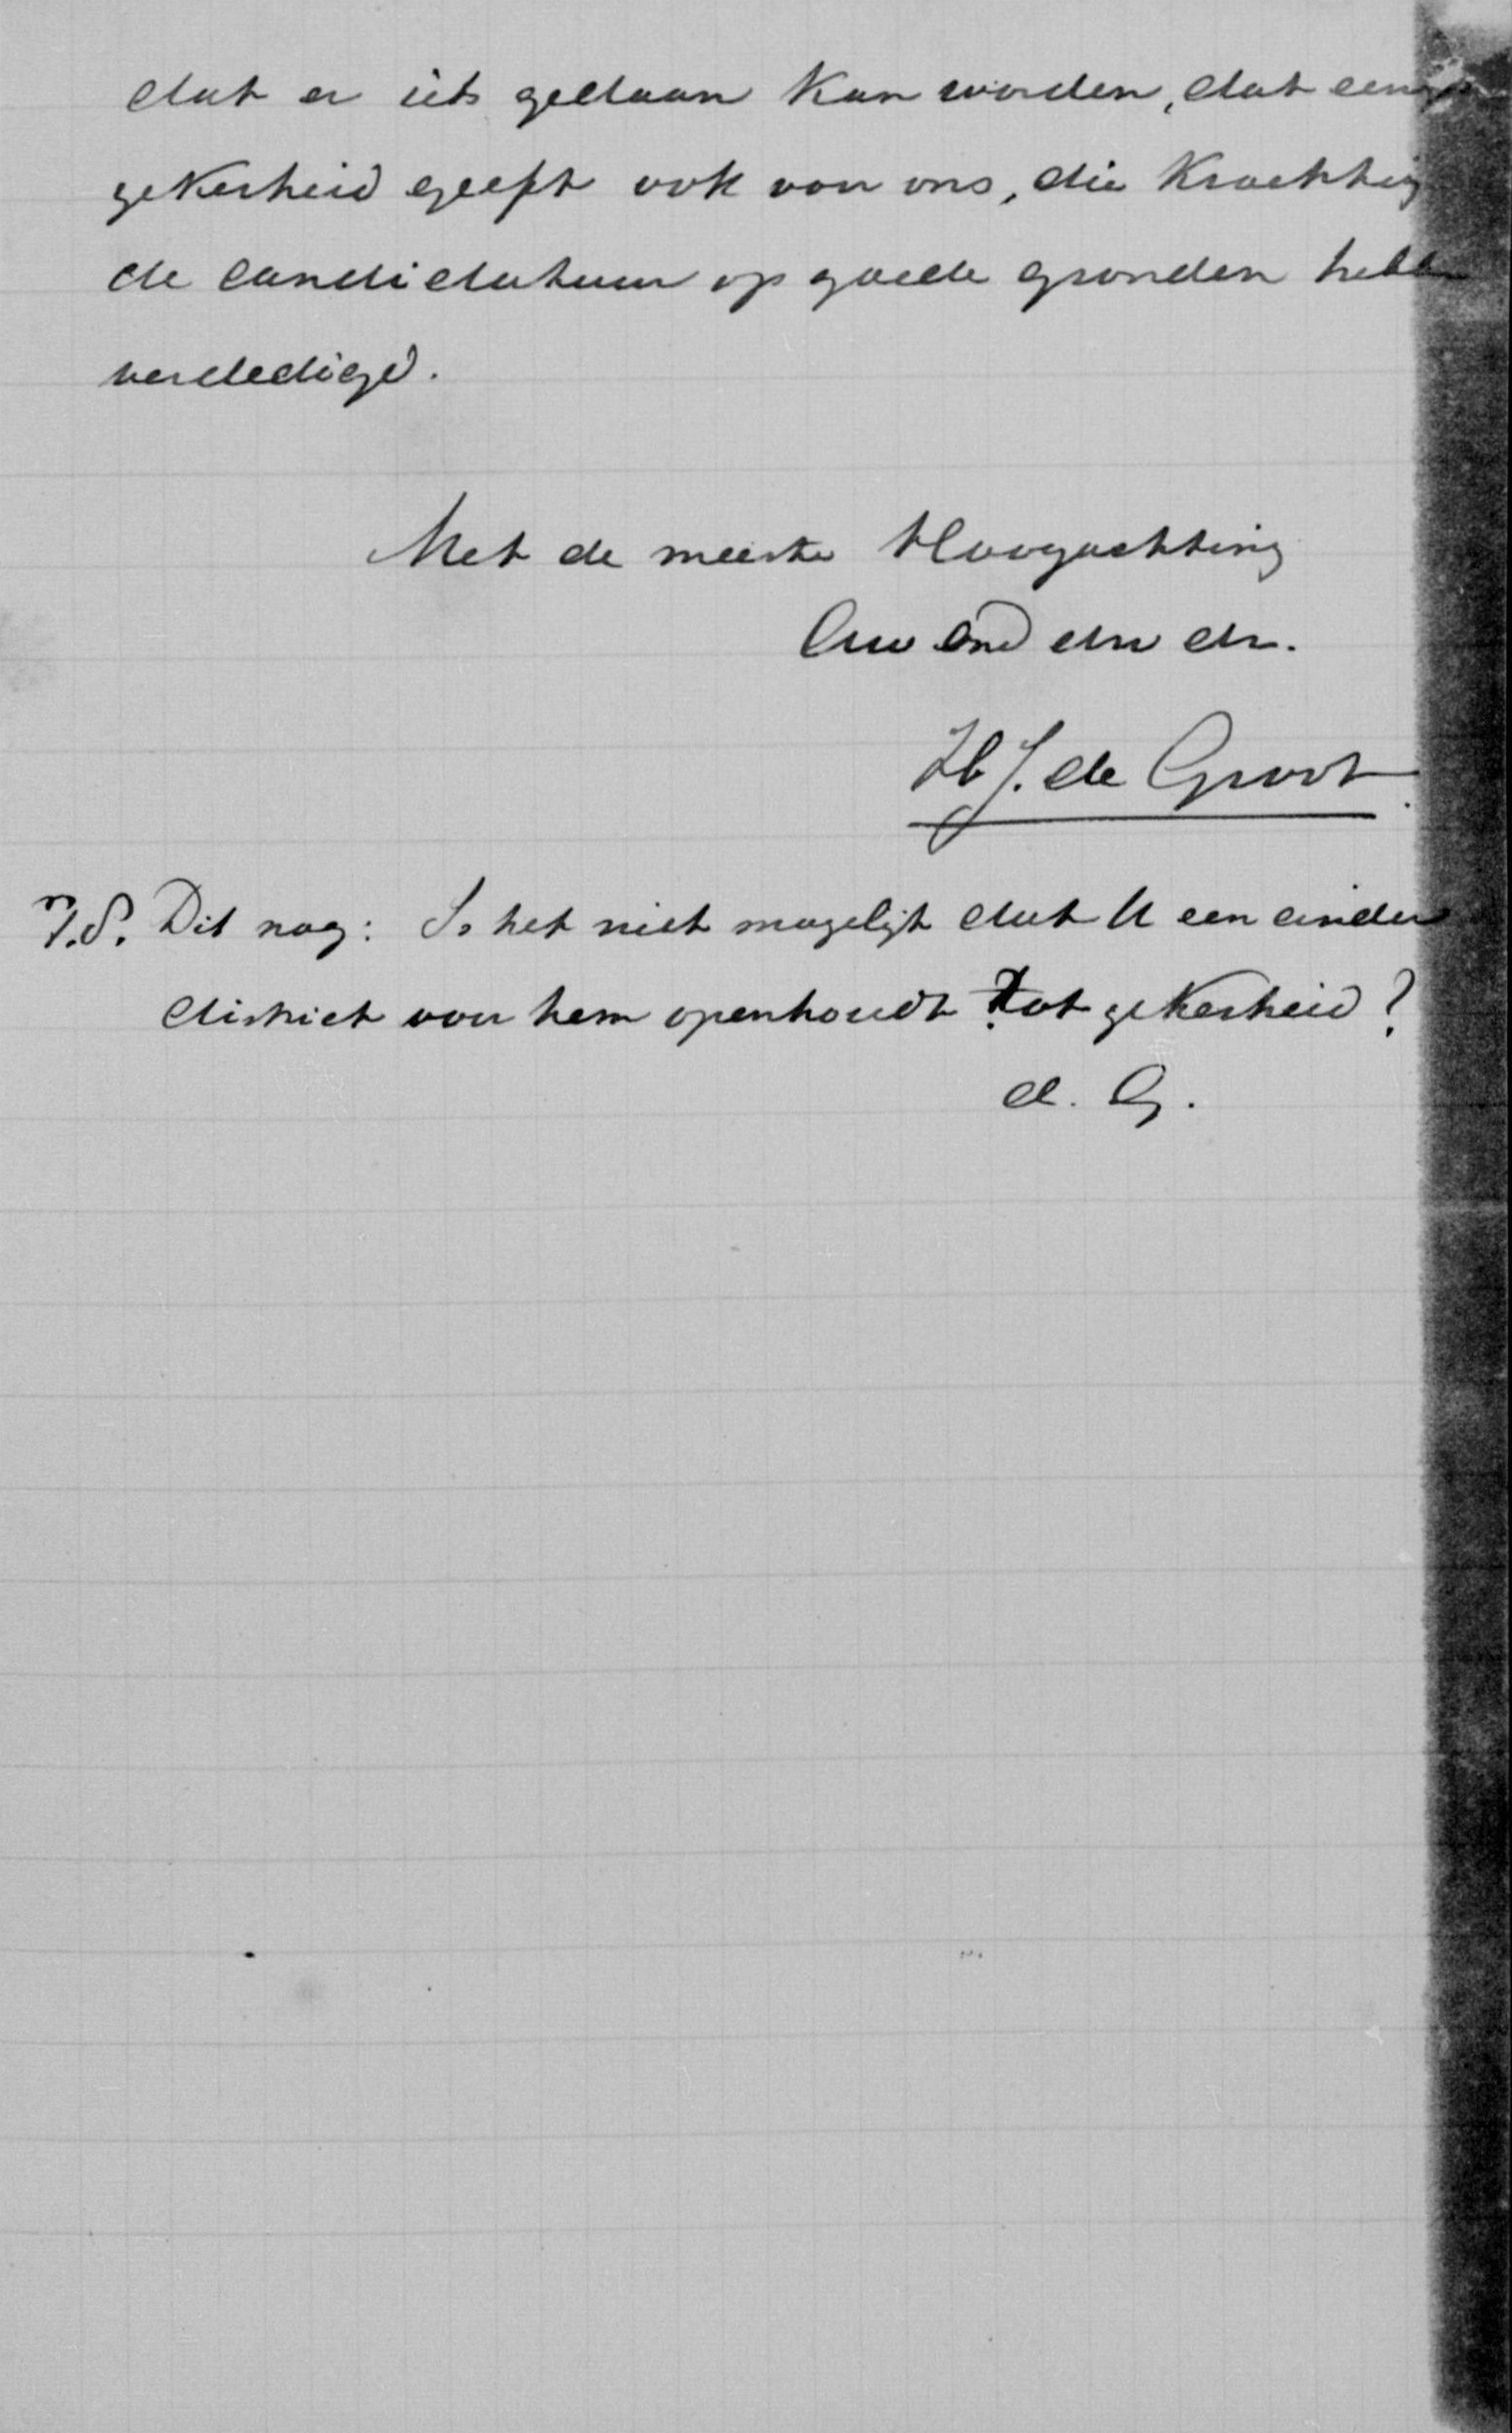 dat er iets gedaan kan worden, dat eenige
zekerheid geeft ook voor ons, die krachtig
de candidatuur op goede gronden hebben
verdedigd.
Met de meeste Hoogachting
Uw Ond dw dr.
H J. de Groot.
P.S. Dit nog: Is het niet mogelijk dat U een ander
district voor hem openhoudt tot zekerheid?
d. G.